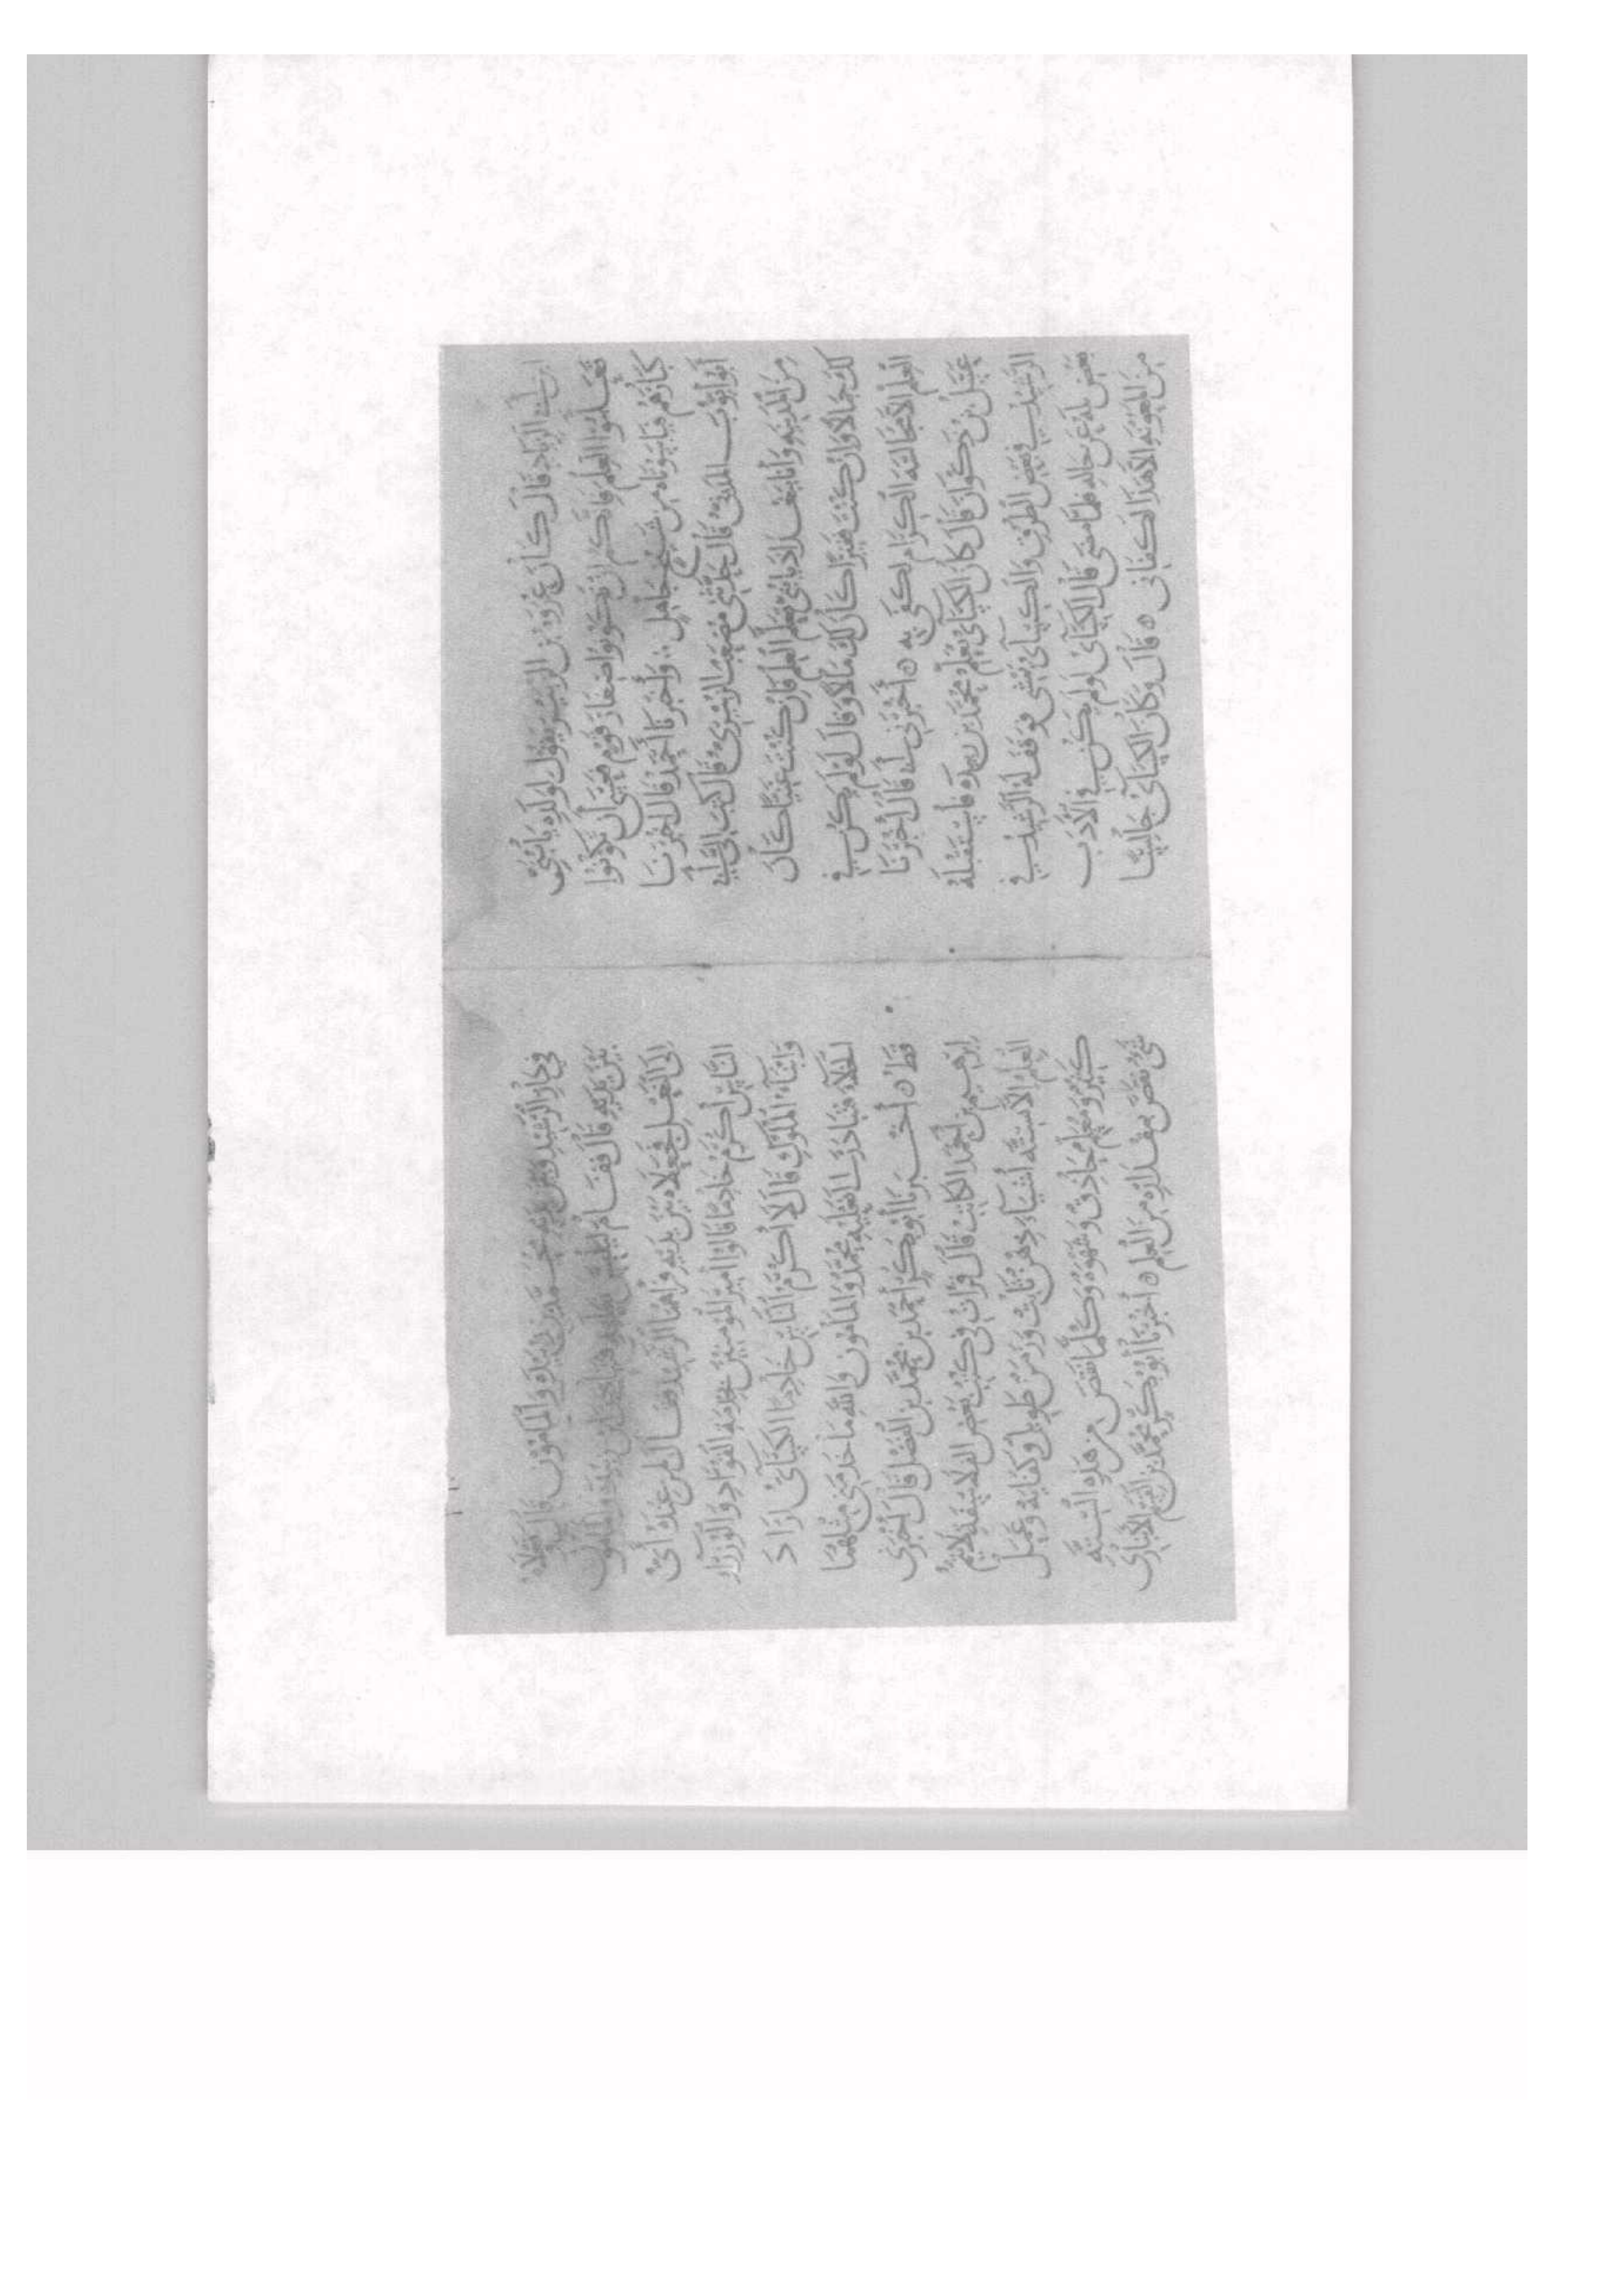 ابن أبي الزناد قال كان عروة بن الزبير يقول لولده يا بني
تعلموا العلم فإنكم إن تكونوا صغار قوم فعسى أن تكونوا
كبارهم فيا سوأتاه من شيخ جاهل وأخبرنا أحمد قال أخبرنا
أبو أيوب قال حدثني مصعب الزبيري قال كتب إلي أبي
من المدينة وأنا ببغداد يا بني تعلم العلم فإن كنت غنيا كان
لك جمالا وإن كنت فقيرا كان لك مالا وقال لو لم يكن في
العلم إلا مجالسة الكرام لكفى به أخبرني أبي قال أخبرنا
عسل بن ذكوان قال كان الكسائي يعلم محمد بن زبيدة فاستقبله
الرشيد في بعض الطرق والكسائي يمشي فوقف له الرشيد في
بعض يسأله عن حاله فلما مشى قال الكسائي لو لم يكن في الأدب
من المعونة إلا هذا لكفاني قال وكان الكسائي جالسا
في دار الرشيد فمر به محمد بن زبيدة والمأمون قال
بين يديه قال فقام ليلبس نعليه فابتدر محمد والمأمون
إلى النعل فجعلاه بين يديه فرآهما الرشيد فقال لمن عنده أي
الناس أكرم خادما قالوا أمير المؤمنين خدمه القواد والوزراء
وأبناء الملوك قال لا أكرم الناس خادما الكسائي أراد
فتبادرا نعليه محمد والمأمون والله ما خدمني مثلهما
قط أخبرنا أبو بكر أحمد بن محمد بن الفضل قال أخبرني
إبراهيم بن أحمد الكاتب قال قرأت في كتب بعض الفلاسفة لا يتم
العلم إلا بستة أشياء ذهن ثاقب وزمن طويل وكفاية وعمل
كثير ومعلم حاذق وشهوة وكلما نقص من هذه الستة
شيء نقص بمقداره من العلم أخبرنا أبو بكر محمد بن القسم الأنباري